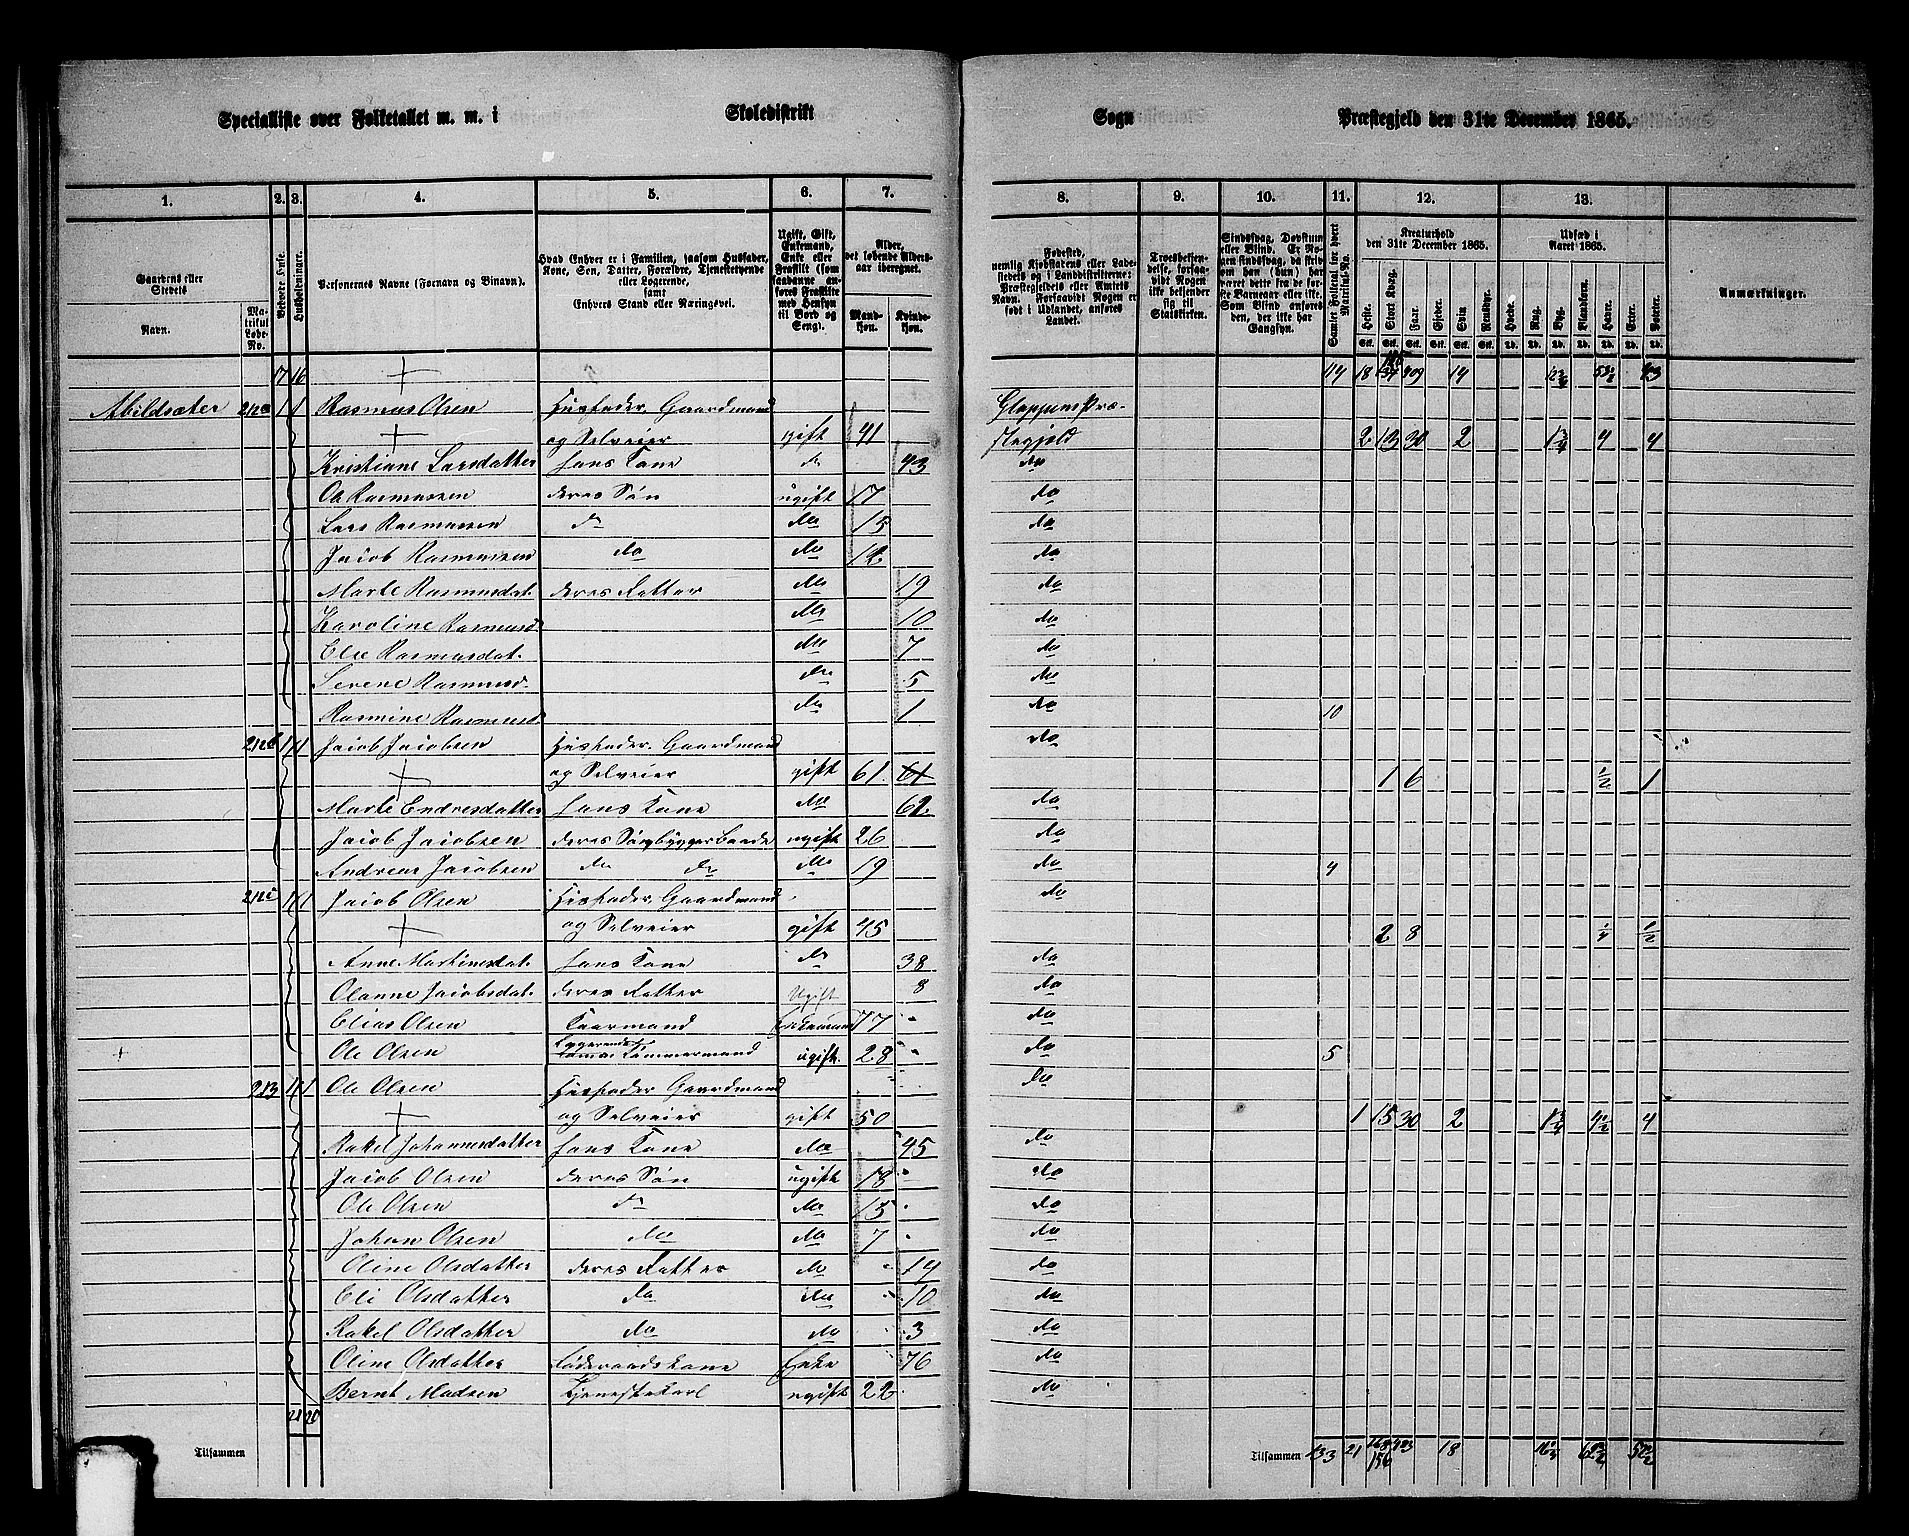 Specialliste over Folketallet m. m. i Skoledistrikt Sogn Præstegjeld den 31te December 1865.
1. 2. 3. 4. 5. 6. 7. 8. 9. 10. 11. 12. 13.
Gaardens eller Stedets Navn.
Matrikul Løbe-No.
Beboede Huse.
Husholdninger.
Personernes Navne (Fornavn og Binavn).
Hvad Enhver er i Familien, saasom Husfader, Kone, Søn, Datter, Forældre, Tjenestetyende eller Logerende, samt Enhvers Stand eller Næringsvei.
Ugift, Gift, Enkemand, Enke eller Fraskilt (som saadanne anføres Fraskilte med Hensyn til Bord og Seng).
Alder, det løbende Aldersaar iberegnet.
Mandkøn. Kvindekøn.
Fødested, nemlig Kjøbstadens eller Ladestedets og i Landdistrikterne: Præstegjeldets eller Amtets Navn. Forsaavidt Nogen er født i Udlandet, anføres Landet.
Troesbekjendelse, forsaavidt Nogen ikke bekjender sig til Statskirken.
Sindssvag, Døvstum eller Blind.
Samlet Folketal for hvert Matrikul-No.
Kreaturhold den 31te December 1865.
Heste. Stort Kvæg. Faar. Gjeder. Sviin. Rensdyr.
Udsæd i Aaret 1865.
Hvede. Rug. Byg. Blandkorn. Havre. Erter. Poteter.
Anmærkninger.
17 16 +
Abildsæter 212a 1 1 Rasmus Olsen Husfader, Gaardmand Gloppens Præ-
+ og Selveier gift 41 stegjeld 2 13 30 2 4 4
Kristiane Larsdatter hans Kone do 43 do
Ole Rasmussen deres Søn ugift 17 do
Lars Rasmussen do do 15 do
Jacob Rasmussen do do 12 do
Marte Rasmusdat. deres Datter do 19 do
Karoline Rasmusd. do 10 do
Else Rasmusdat. do 7 do
Serene Rasmusd. do 5 do
Rasmine Rasmusd. do 1 do 10
1 1 Jacob Jacobsen Husfader, Gaardmand do
+ og Selveier gift 61 61 1 6 1/2 1
Marte Endresdatter hans Kone do 62 do
Jacob Jacobsen deres Søn ugift 26 do
Andreas Jacobsen do do do 19 do 4
1 1 Jacob Olsen Husfader, Gaardmand do
+ og Selveier gift 45 2 8 1/4 1/2
Anne Martinusdat. hans Kone do 38 do
Olanne Jacobsdat. deres Datter Ugift 8 do
Elias Olsen Kaarmand Enkemand 77 do
+ Ole Olsen Logerende Tømmermand ugift 28 do 5
213 1 1 Ole Olsen Husfader Gaardmand do
+ og Selveier gift 50 1 15 30 2 4 1/2 4
Rakel Johannesdatter hans Kone do 45 do
Jacob Olsen deres Søn ugift 18 do
Ole Olsen do do 15 do
Johan Olsen do do 7 do
Oline Olsdatter deres Datter do 14 do
Eli Olsdatter do do 10 do
Rakel Olsdatter do do 3 do
Oline Olsdatter Føderaadskone Enke 76 do
Bernt Madsen Tjenestekarl ugift 22 do
21 20
Tilsammen
Tilsammen 133 21 156 18